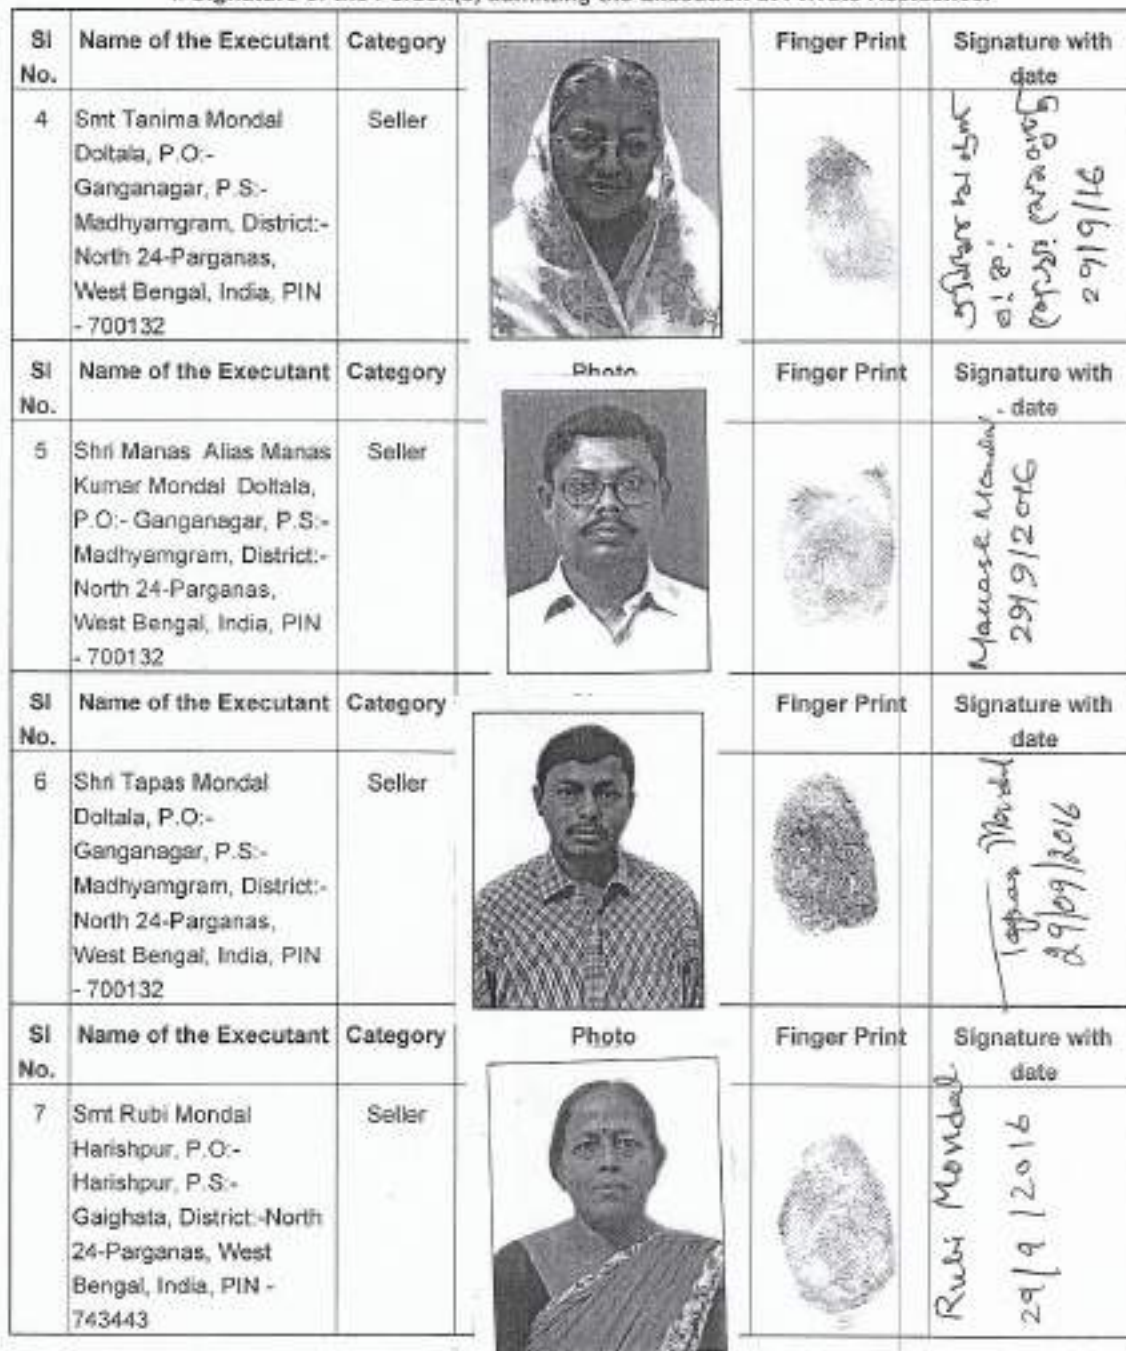 Signature of the Person(s) admitting the Execution at Private Residence.
Sl No. Name of the Executant Category Finger Print Signature with date
4 Smt Tanima Mondal Seller
Doltala, P.O:-
Ganganagar, P.S:-
Madhyamgram, District:-
North 24-Parganas,
West Bengal, India, PIN
- 700132
29/9/16
Sl No. Name of the Executant Category Photo Finger Print Signature with date
5 Shri Manas Alias Manas Seller
Kumar Mondal Doltala,
P.O:- Ganganagar, P.S:-
Madhyamgram, District:-
North 24-Parganas,
West Bengal, India, PIN
- 700132
29/9/2016
Sl No. Name of the Executant Category Finger Print Signature with date
6 Shri Tapas Mondal Seller
Doltala, P.O:-
Ganganagar, P.S:-
Madhyamgram, District:-
North 24-Parganas,
West Bengal, India, PIN
- 700132
Tapas Mondal
29/09/2016
Sl No. Name of the Executant Category Photo Finger Print Signature with date
7 Smt Rubi Mondal Seller
Harishpur, P.O:-
Harishpur, P.S:-
Gaighata, District:-North
24-Parganas, West
Bengal, India, PIN -
743443
Rubi Mondal
29/9/2016